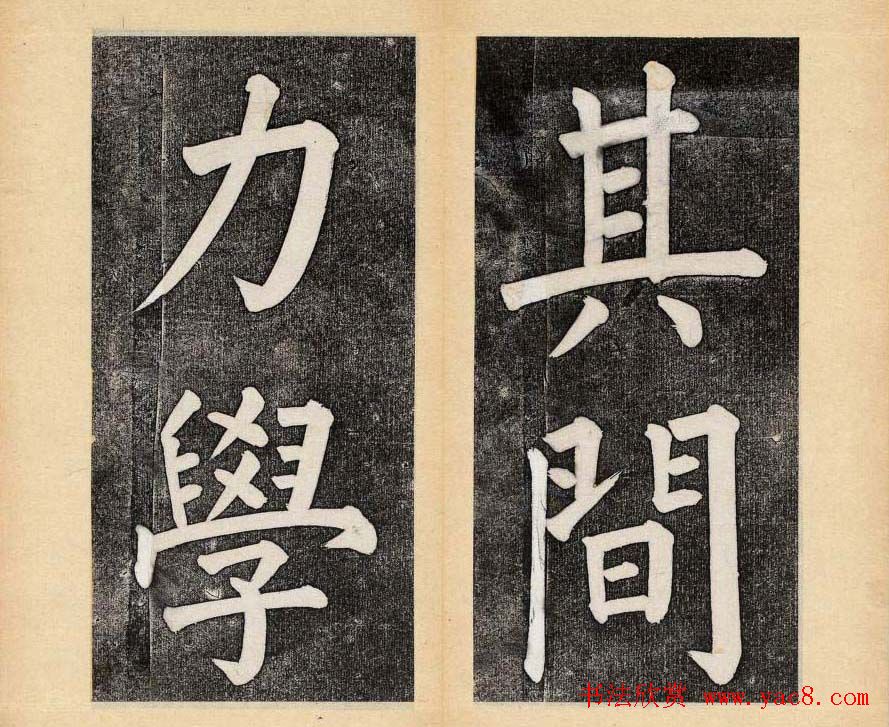 其間
力學
书法欣赏 www.yac8.com